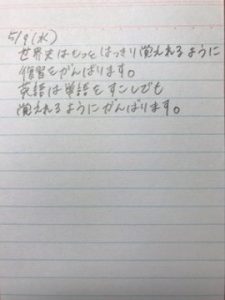 5/9(水)
世界史はもっとはっきり覚えれるように
復習をがんばります。
英語は単語をすこしでも
覚えれるようにがんばります。